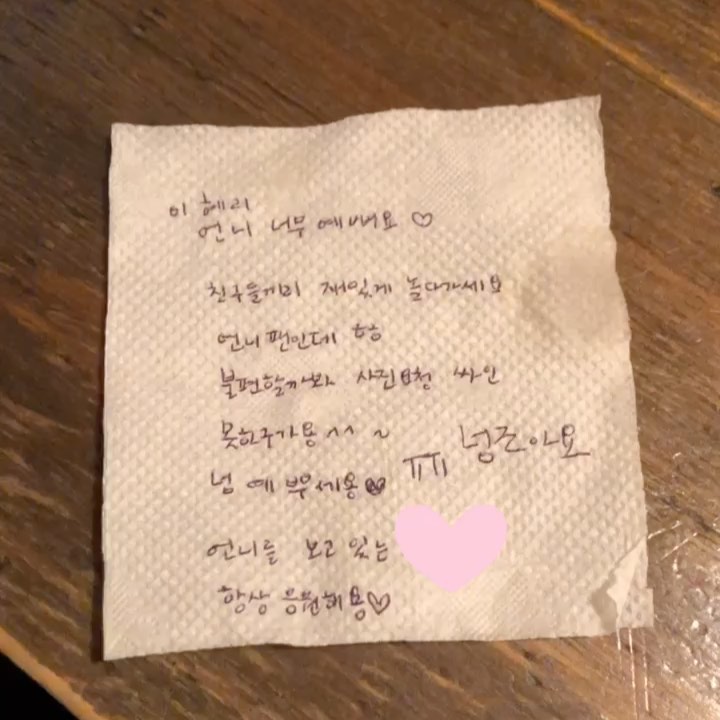 이 혜리
언니 너무 예뻐요 ♡
친구들끼리 재밌게 놀다가세요
언니팬인데 항
불편할까봐 사진요청 싸인
못하구가용 ^^ ~
넘 예뿌세용♥ ㅠㅠ 넝조아요
언니를 보고 있는
항상 응원해용♡